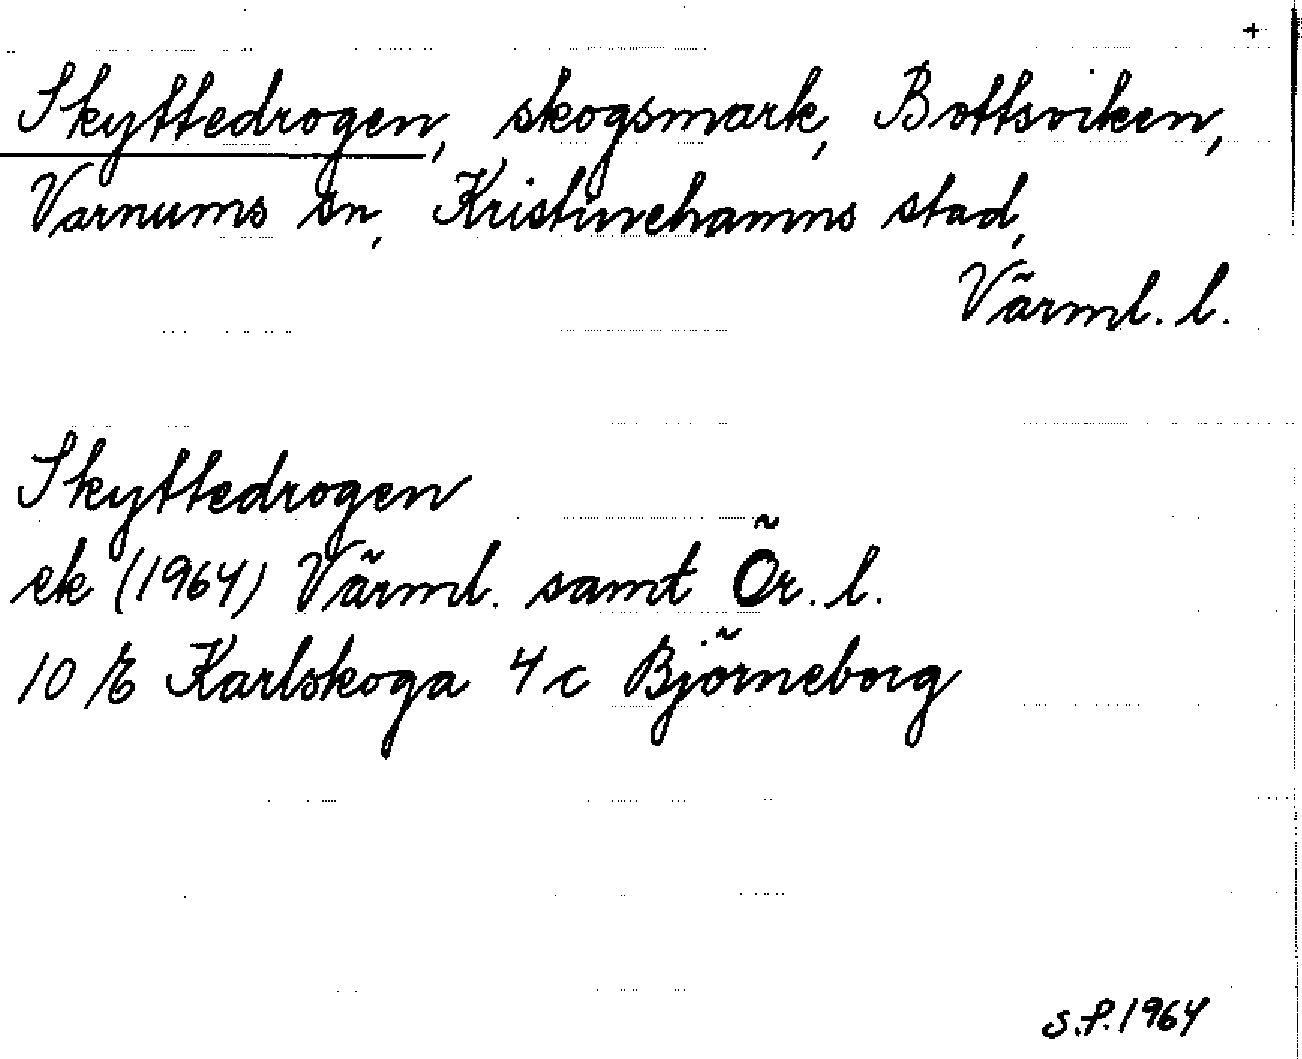 +
Skyttedrogen, skogsmark, Bottsviken,
Varnums sn, Kristinehamns stad,
Värml. l.
Skyttedrogen
ek (1964) Värml. samt Ör. l.
10 E Karlskoga 4 c Björneborg
S.P. 1964